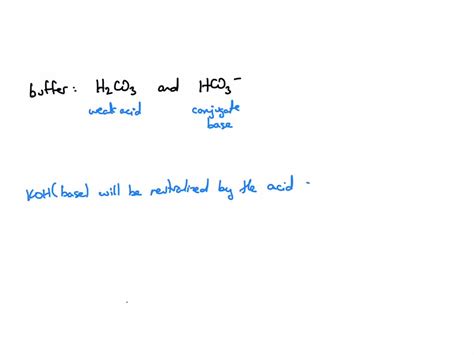 buffer: H₂CO₃ and HCO₃⁻
weak acid conjugate
base
KOH (base) will be neutralized by the acid